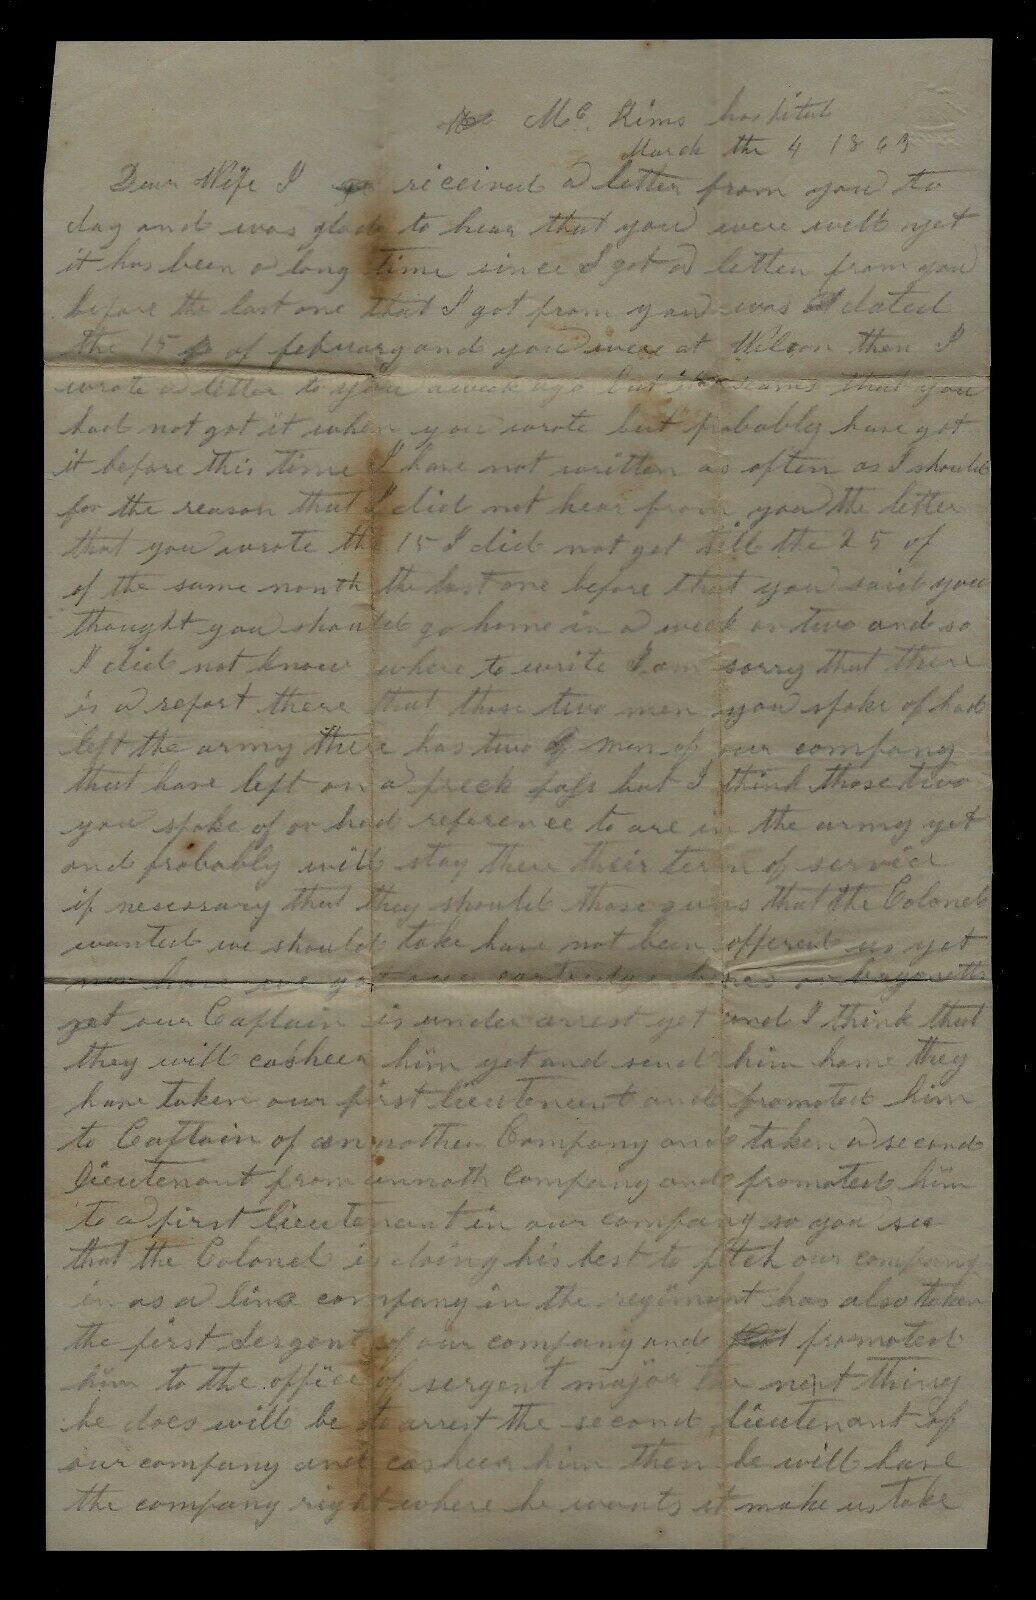 Mc. Kims hospital
March the 4 1863
Dear Wife I received a letter from you to
day and was glad to hear that you were well yet
it has been a long time since I got a letter from you
before the last one that I got from you was dated
the 15 of febuary and you were at Wilson then I
wrote a letter to you a week ago but it seams that you
had not got it when you wrote but probably have got
it before this time I have not written as often as I should
for the reason that I did not hear from you the letter
that you wrote the 15 I did not get till the 25 of
of the same month the last one before that you said you
thought you should go home in a week or two and so
I did not know where to write I am sorry that there
is a report there that those two men you spoke of had
left the army there has two men of our company
that have left on a freck pass but I think those two
you spoke of or had reference to are in the army yet
and probably will stay there their term of service
if nesessary that they should those guns that the Colonel
wanted we should take have not been offered us yet
nor have we got our cartridg boxes or bayonetts
yet our Captain is under arrest yet and I think that
they will casheer him yet and send him home they
have taken our first lieutenant and promoted him
to Captain of annother Company and taken a second
lieutenant from annoth company and promoted him
to a first lieutenant in our company so you see
that the Colonel is doing his best to pitch our company
in as a line company in the regiment has also taken
the first Sergont of our company and promoted
him to the office of sergent major the next thing
he does will be to arrest the second lieutenant of
our company and casheer him then he will have
the company right where he wants it make us take